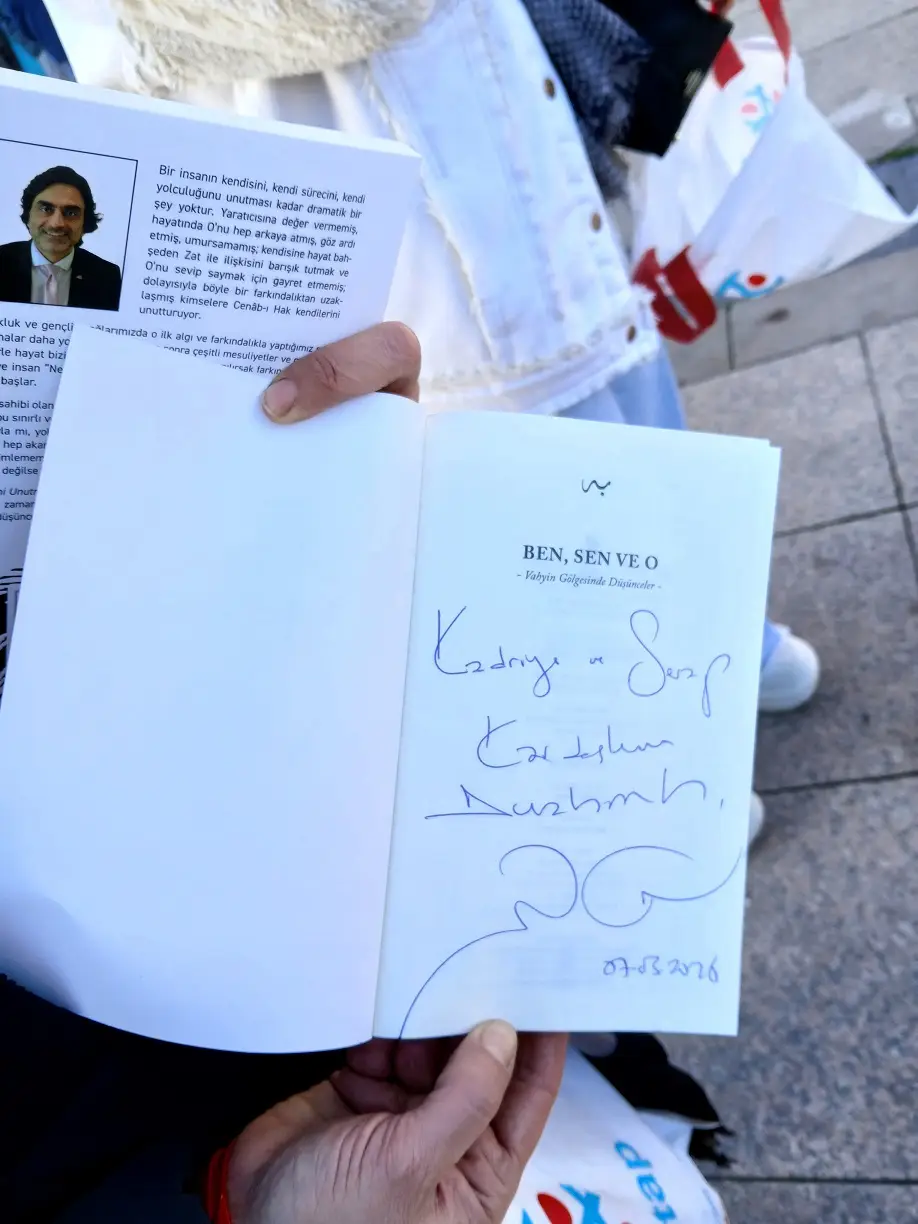 Bir insanın kendisini, kendi sürecini, kendi
yolculuğunu unutması kadar dramatik bir
şey yoktur. Yaratıcısına değer vermemiş,
hayatında O’nu hep arkaya atmış, göz ardı
etmiş, umursamamış; kendisine hayat bah-
şeden Zat ile ilişkisini barışık tutmak ve
O’nu sevip saymak için gayret etmemiş;
dolayısıyla böyle bir farkındalıktan uzak-
laşmış kimselere Cenâb-ı Hak kendilerini
unutturuyor.
kluk ve gençli
ğlarımızda o ilk algı ve farkındalıkla yaptığımız
malar daha yo
sonra çeşitli mesuliyetler ve
rle hayat bizi
ve insan “Ne
başlar.
sahibi olan
bu sınırlı v
la mı, yol
hep akar
değilse
zaman
BEN, SEN VE O
- Vahyin Gölgesinde Düşünceler -
Kadriye ve Serap
Kardeşlerim
07.03.2026